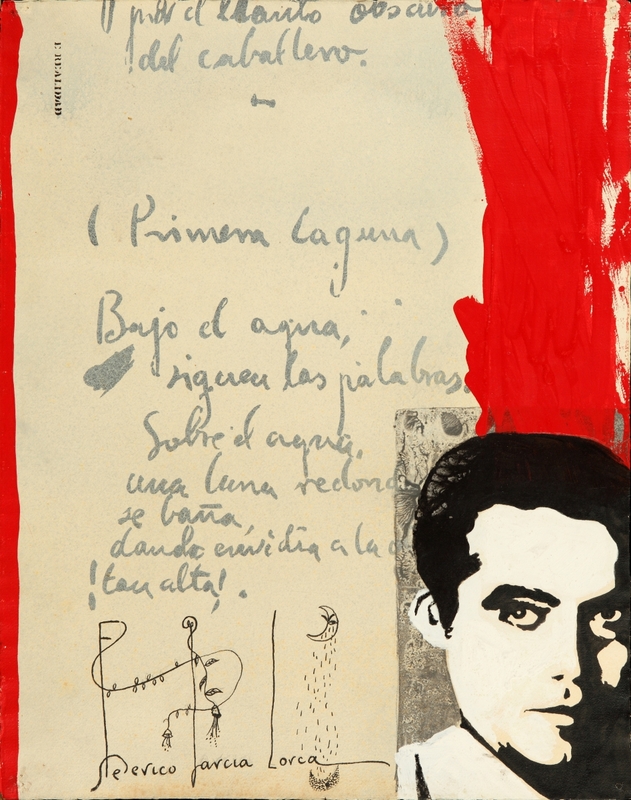 por el llanto obscuro
del caballero.
E REALIDAD
(Primera laguna)
Bajo el agua,
siguen las palabras.
Sobre el agua,
una luna redonda
se baña,
dando envidia a la
!tan alta!.
Federico García Lorca